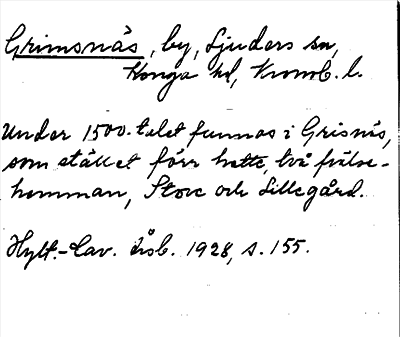 Grimsnäs, by, Ljuders sn,
Konga hd, Kronob. l.
Under 1500-talet funnos i Grisnäs,
som stället förr hette, två frälse-
hemman, Store och Lillegård.
Hylt.-Cav. årsb. 1928, s. 155.